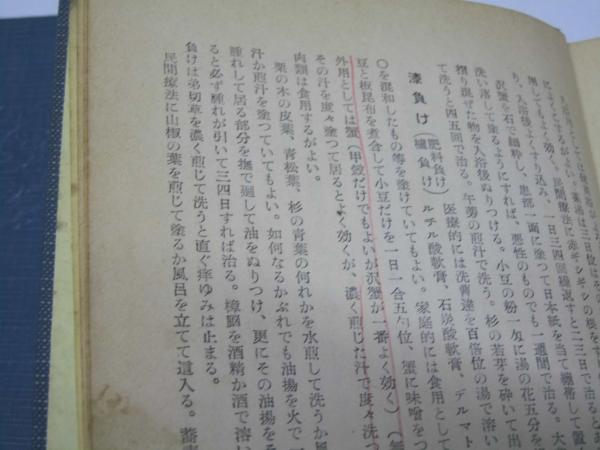 り、入浴後よくすり込み、一日三四回繰返すと二三日で治ると
擦してもよく効く。民間療法に赤ギシギシの根をす
沢蟹を石で細粋し、患部一面に塗つて日本紙を当て繃帯して置く
洗い落して塗るようにすれば、悪性のものでも一週間で治る。大
摺り混ぜた物を入浴後ぬりつける。小豆の粉、匁に湯の花五分を
て洗うと四五回で治る。牛蒡の煎汁で洗う。杉の若芽を砕いて出
漆負け（肥料負け）（櫨負け）医療的には洗曹達を百倍位の湯で溶い
ルチル酸軟膏、石炭酸軟膏、デルマト
〇を混和したもの等を塗けていてもよい。家庭的には食用として
豆と板昆布を煮合して小豆だけを一日一合五勺位、蟹に味噌をつ
外用としては蟹（甲殻だけでもよいが沢蟹が一番よく効く）
その汁を度々塗つて居るとよく効くが、濃く煎じた汁で度々洗つ
肉類は食用するがよい。
栗の木の皮葉、青松葉、杉の青葉の何れかを水煎して洗うか風
汁か煎汁を塗つていてもよい。如何なるかぶれでも油揚を火で
腫れして居る部分を撫で廻して油をぬりつけ、更にその油揚をそ
ると必ず腫れが引いて三四日すれば治る。樟脳を酒精か酒で溶い
負けは弟切草を濃く煎じて洗うと直ぐ痒ゆみは止まる。
民間療法に山椒の葉を煎じて塗るか風呂を立てて這入る。蕎